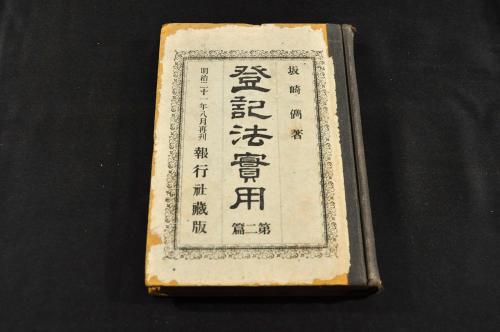 坂崎偁著
登記法實用
第二篇
明治二十一年八月再刊
報行社藏版